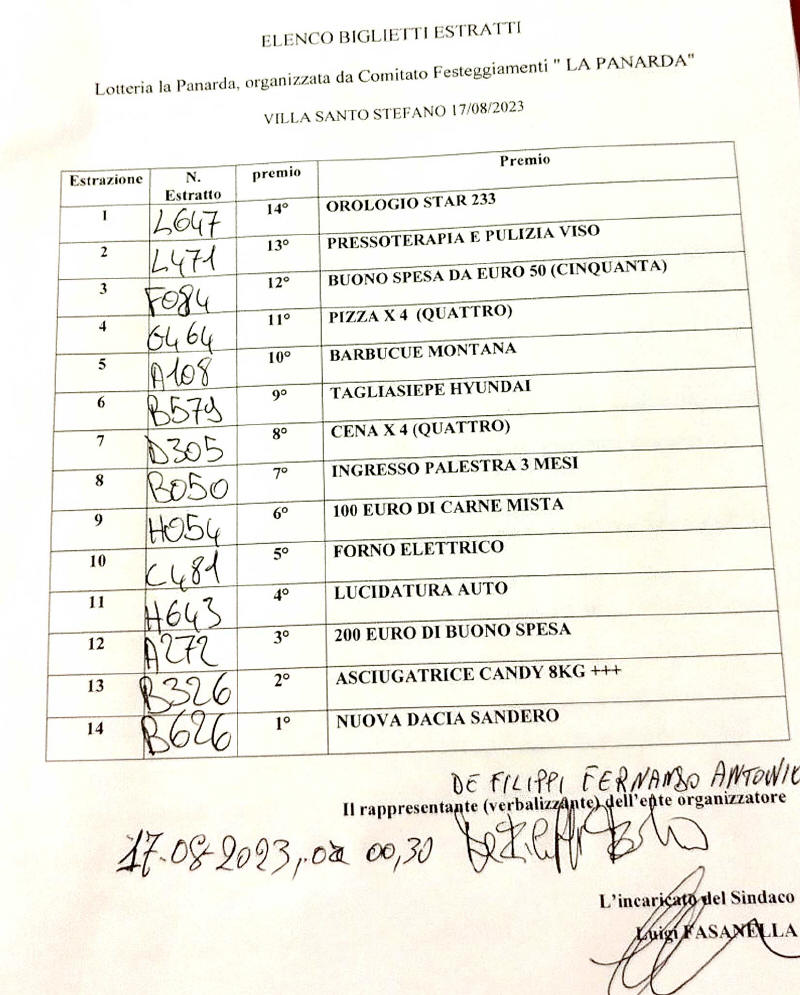 ELENCO BIGLIETTI ESTRATTI
Lotteria la Panarda, organizzata da Comitato Festeggiamenti " LA PANARDA"
VILLA SANTO STEFANO 17/08/2023
Estrazione N. Estratto premio Premio
1 L647 14° OROLOGIO STAR 233
2 L471 13° PRESSOTERAPIA E PULIZIA VISO
3 F084 12° BUONO SPESA DA EURO 50 (CINQUANTA)
4 G464 11° PIZZA X 4 (QUATTRO)
5 A108 10° BARBUCUE MONTANA
6 B579 9° TAGLIASIEPE HYUNDAI
7 D305 8° CENA X 4 (QUATTRO)
8 B050 7° INGRESSO PALESTRA 3 MESI
9 H054 6° 100 EURO DI CARNE MISTA
10 C481 5° FORNO ELETTRICO
11 H643 4° LUCIDATURA AUTO
12 A272 3° 200 EURO DI BUONO SPESA
13 B326 2° ASCIUGATRICE CANDY 8KG +++
14 B626 1° NUOVA DACIA SANDERO
DE FILIPPI FERNANDO ANTONIO
Il rappresentante (verbalizzante) dell'ente organizzatore
17-08-2023, 00,30
L'incaricato del Sindaco
Luigi FASANELLA